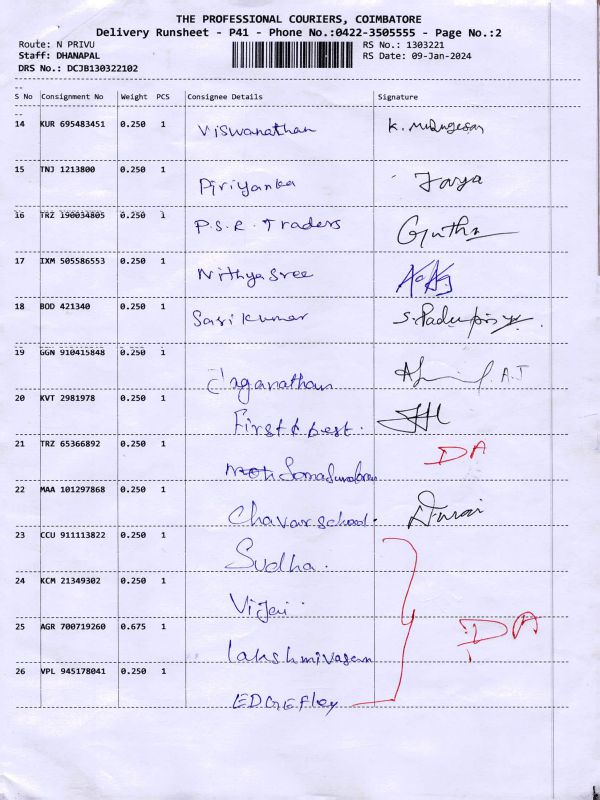 THE PROFESSIONAL COURIERS, COIMBATORE
Delivery Runsheet - P41 - Phone No.:0422-3505555 - Page No.:2
Route: N PRIVU RS No.: 1303221
Staff: DHANAPAL RS Date: 09-Jan-2024
DRS No.: DCJB130322102
S No Consignment No Weight PCS Consignee Details Signature
14 KUR 695483451 0.250 1 Viswanathan K. Murugesan
15 TNJ 1213800 0.250 1 Piriyanka Jaya
16 TRZ 190034805 0.250 1 P.S.R. Traders
17 IXM 505586553 0.250 1 Nithya Sree
18 BOD 421340 0.250 1 Sasi Kumar
19 GGN 910415848 0.250 1 Jaganathan A.J
20 KVT 2981978 0.250 1 First & best.
21 TRZ 65366892 0.250 1 DA
22 MAA 101297868 0.250 1 Chavar school. Durai
23 CCU 911113822 0.250 1 Sudha.
24 KCM 21349302 0.250 1 Vijai.
25 AGR 700719260 0.675 1 lakshmivasan DA
26 VPL 945178041 0.250 1